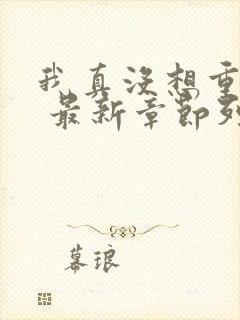 我真没想重
最新章节列
幕琅